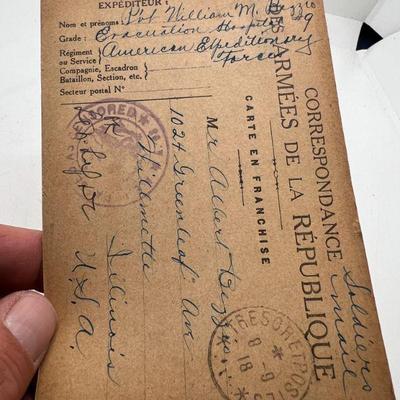 EXPÉDITEUR:
Nom et prénoms: Pvt William M.
Grade: Evacuation Hospital
Régiment ou Service American Expeditionary
Compagnie, Escadron Forces
Bataillon, Section, etc.
Secteur postal N°
CORRESPONDANCE
DES ARMÉES DE LA RÉPUBLIQUE
CARTE EN FRANCHISE
Soldiers
mail
Mr Albert
1024 Greenleaf Av
Wilmette
Illinois
U.S.A
TRESOR ET POSTES
8-9
18